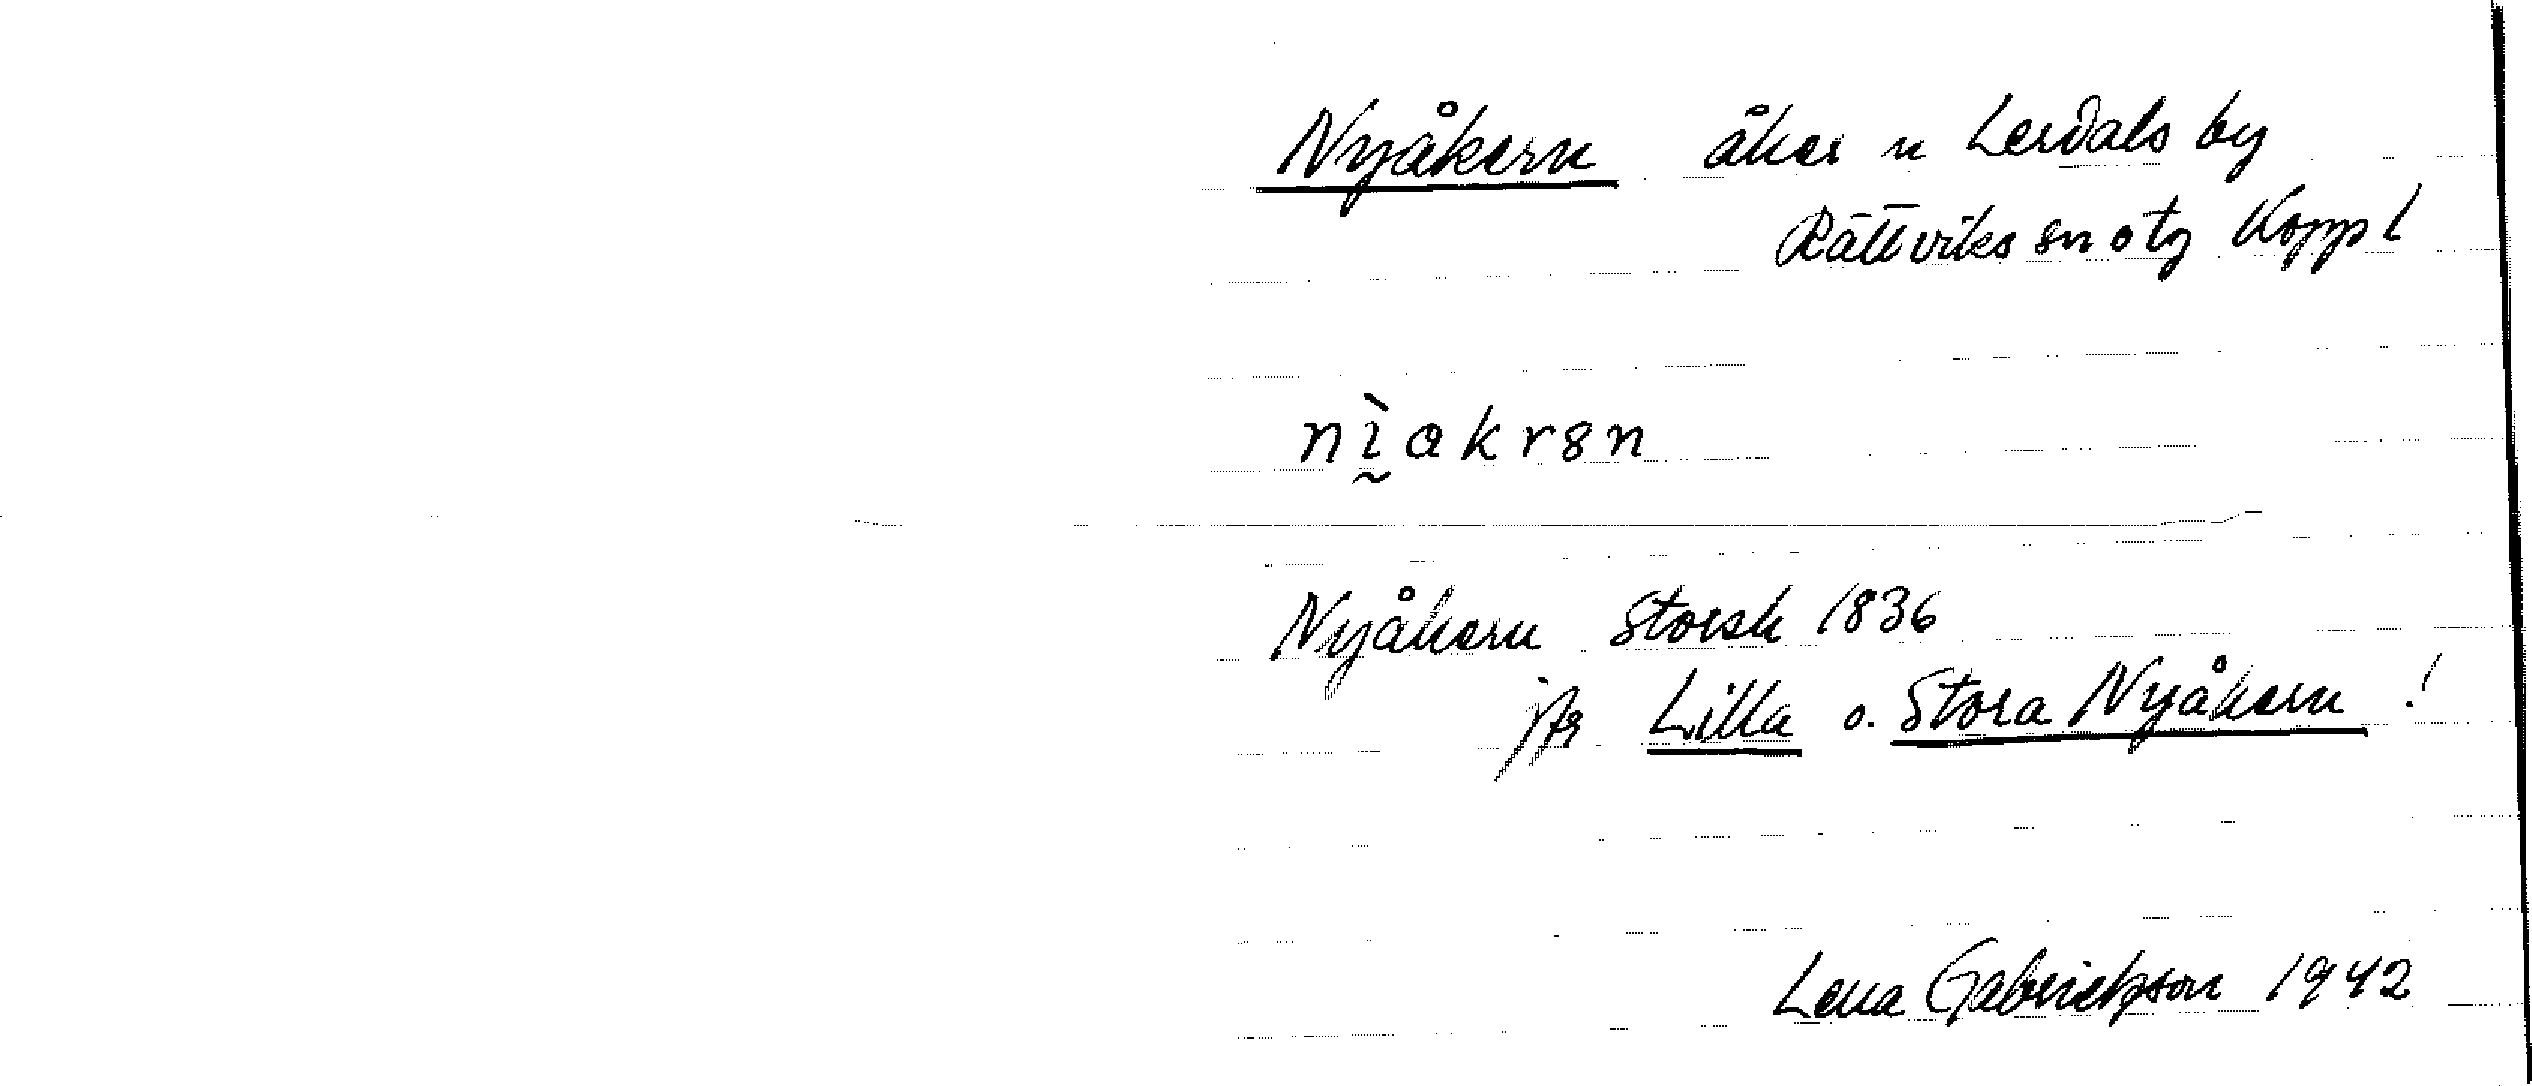 Nyåkern åker n Lerdals by
Rättviks sn o tg Koppl
nı̰̀akrən
Nyåkern Storsk 1836
jfr Lilla o. Stora Nyåkern !
Lena Gabrielsson 1942